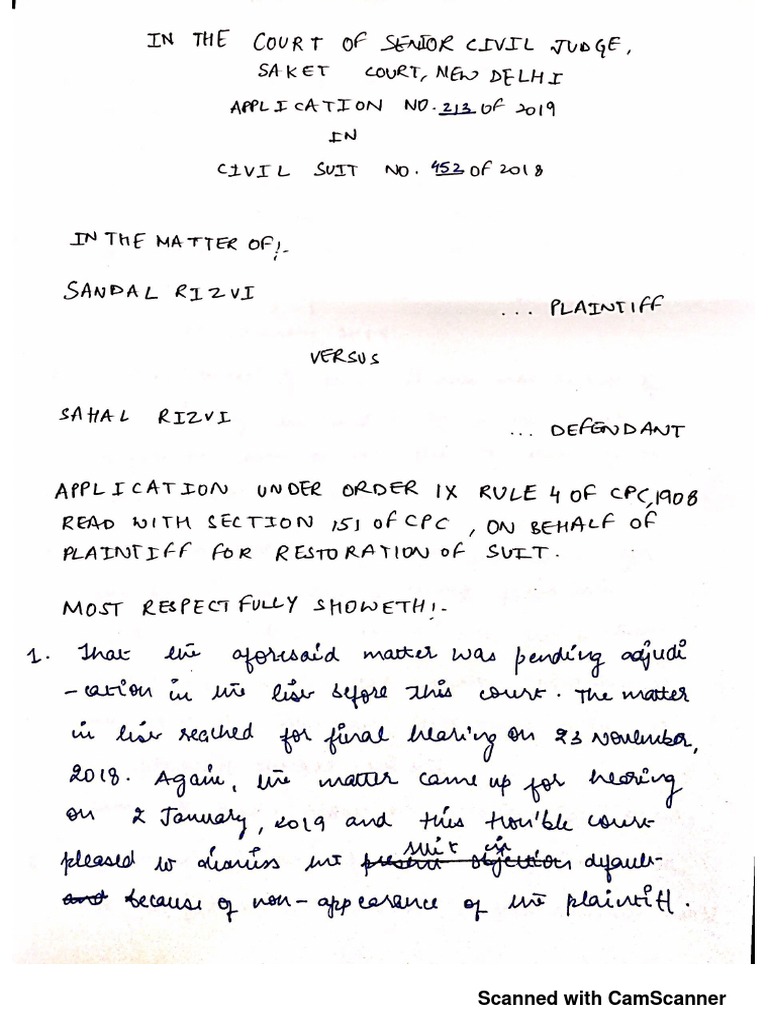 IN THE COURT OF SENIOR CIVIL JUDGE,
SAKET COURT, NEW DELHI
APPLICATION NO. 213 OF 2019
IN
CIVIL SUIT NO. 452 OF 2018
IN THE MATTER OF:-
SANDAL RIZVI
... PLAINTIFF
VERSUS
SAHAL RIZVI
... DEFENDANT
APPLICATION UNDER ORDER IX RULE 4 OF CPC, 1908
READ WITH SECTION 151 OF CPC, ON BEHALF OF
PLAINTIFF FOR RESTORATION OF SUIT.
MOST RESPECTFULLY SHOWETH:-
1. That the aforesaid matter was pending adjudi
-cation in the list before this court. The matter
in list reached for final hearing on 23 November,
2018. Again, the matter came up for hearing
on 2 January, 2019 and this Hon'ble court
pleased to dismiss the present objection suit in default
and because of non-appearance of the plaintiff.
Scanned with CamScanner